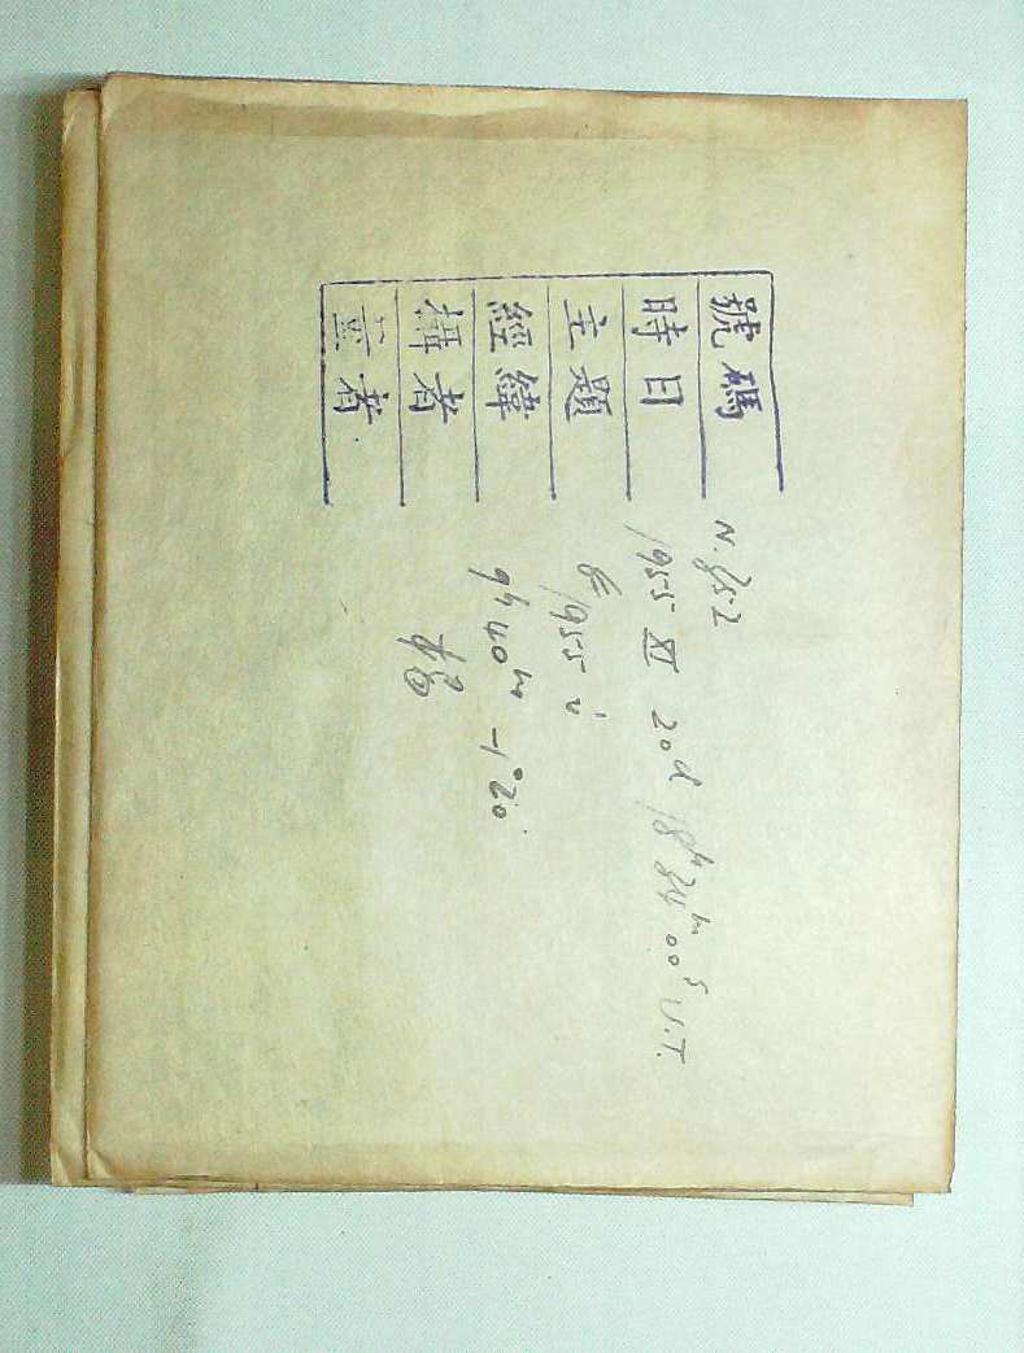 號碼 N.852
時日 1955 XI 20d 18h 34m 00s U.T.
主題 1955
經緯 9h 40m -1°20'
攝者
者